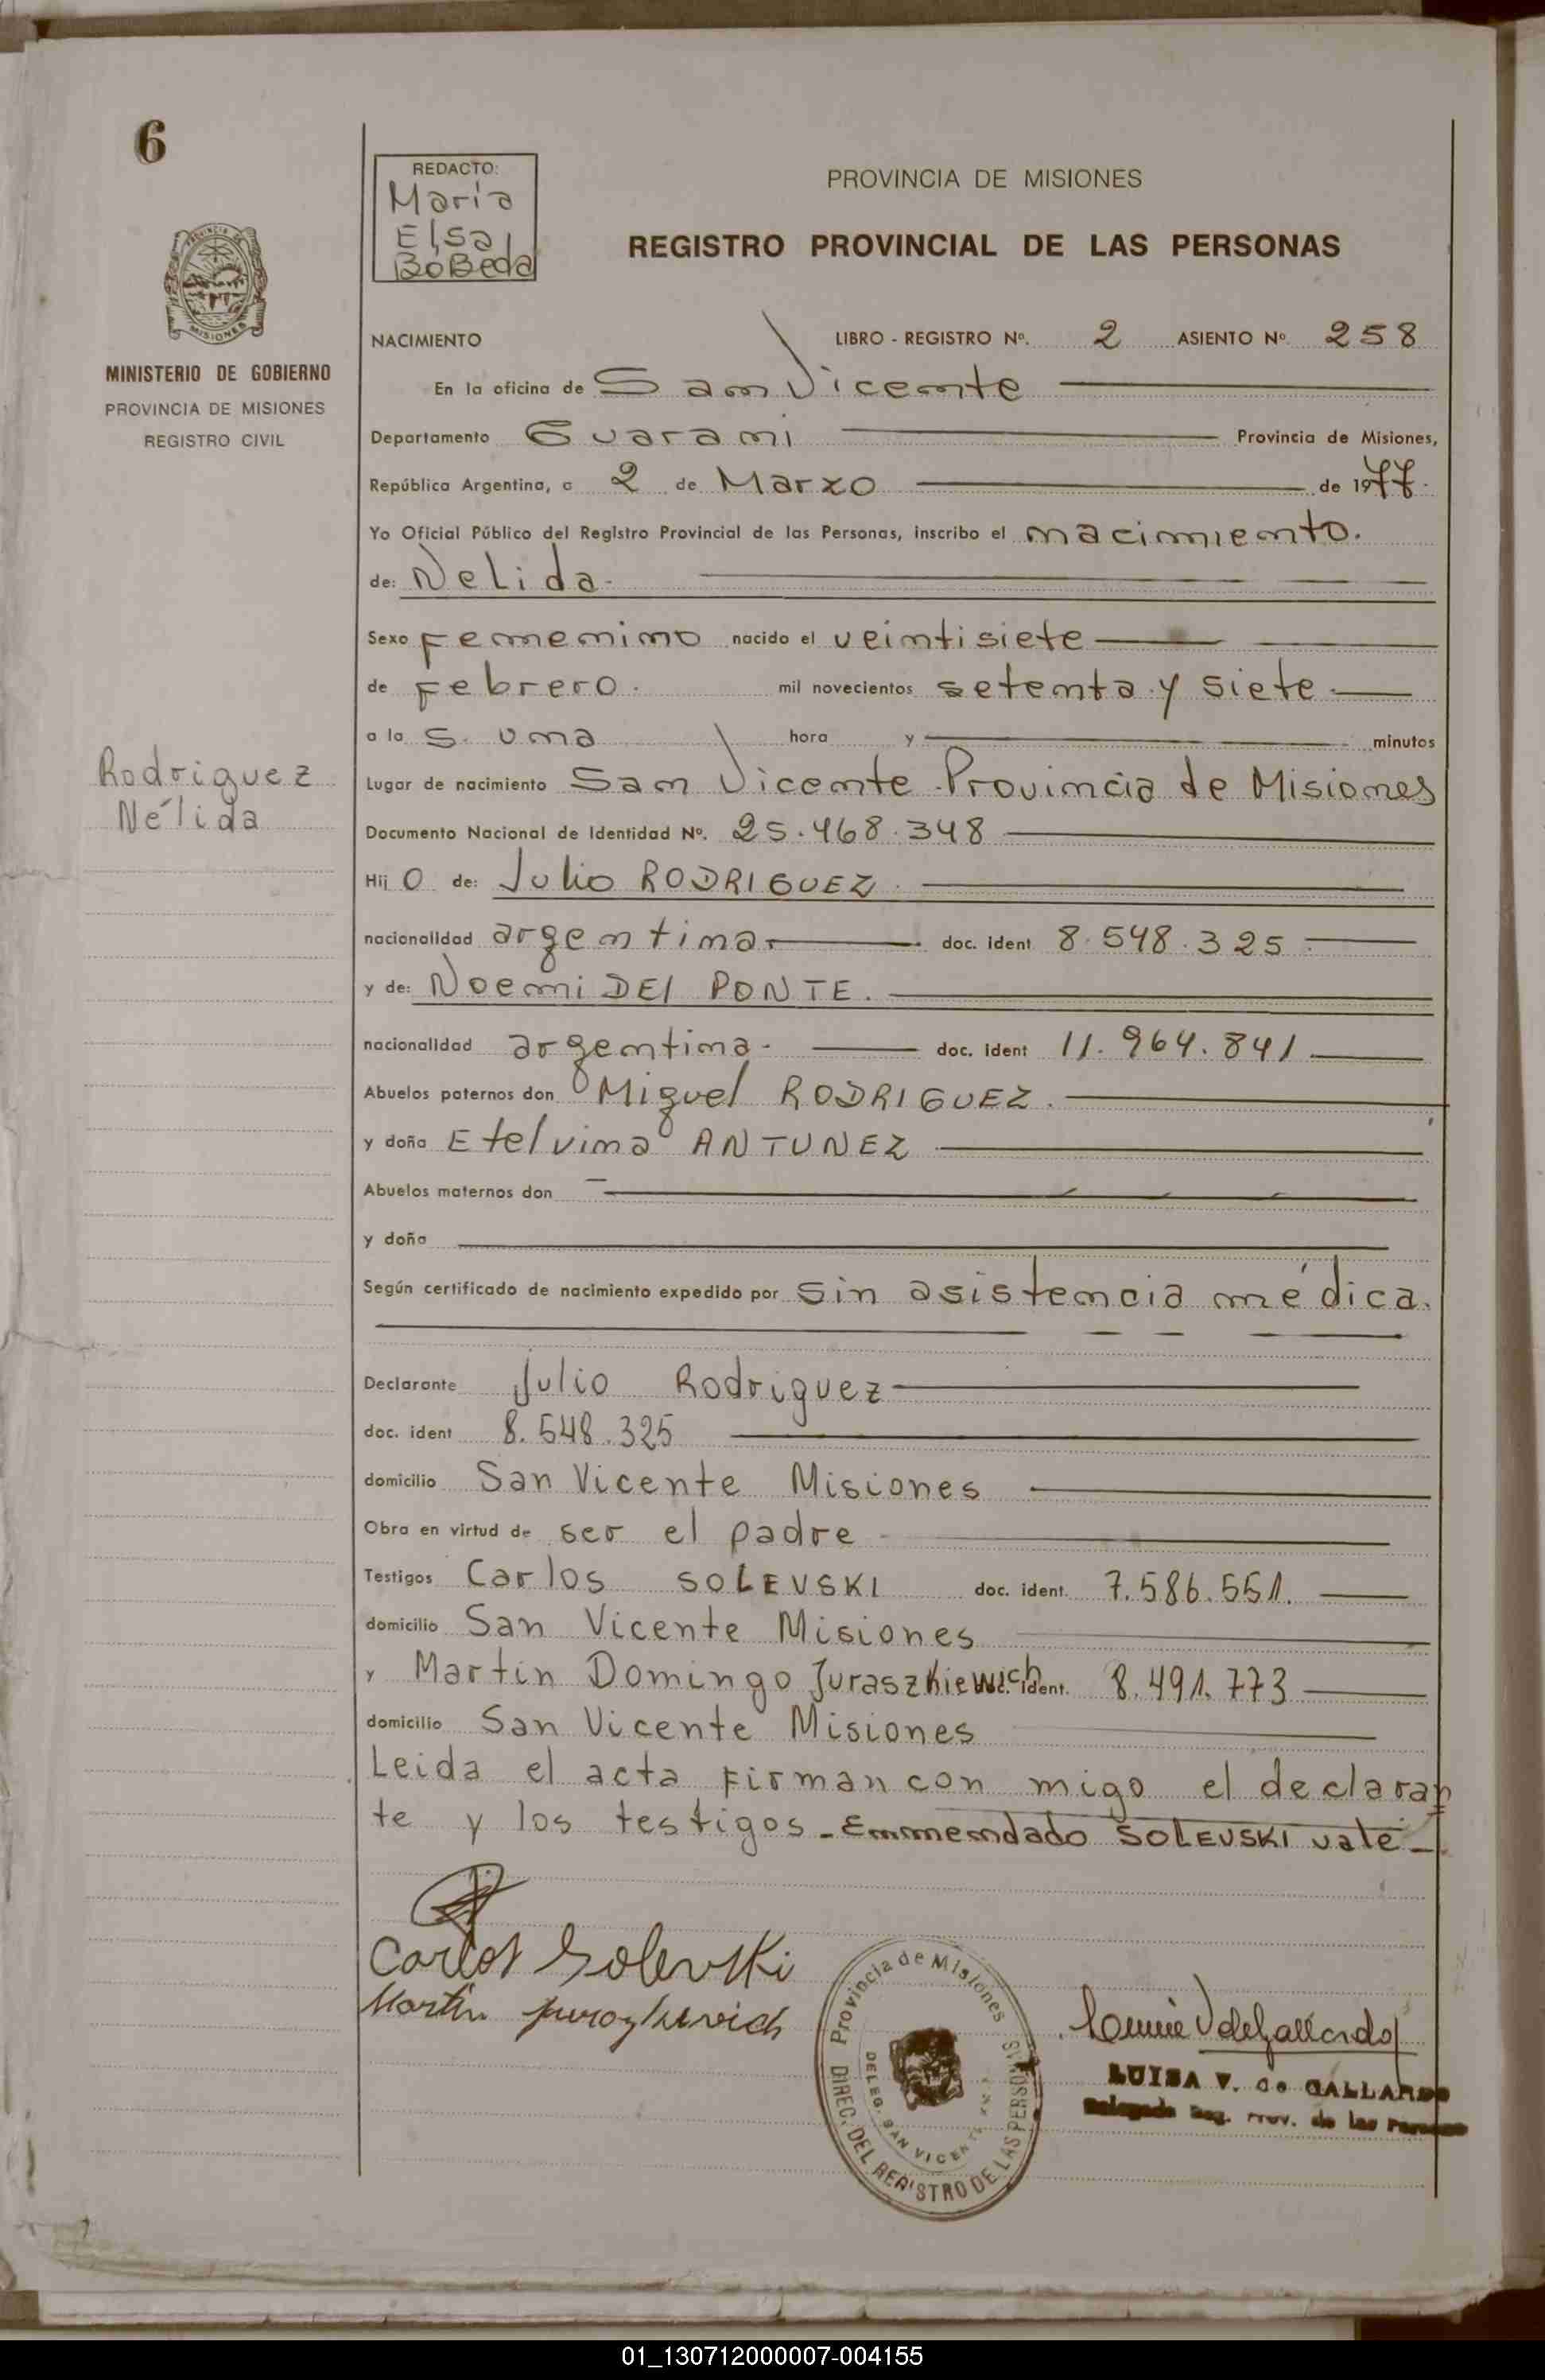 6
REDACTO:
Maria
Elsa
BoBeda
PROVINCIA DE MISIONES
REGISTRO PROVINCIAL DE LAS PERSONAS
MISIONES
MINISTERIO DE GOBIERNO
PROVINCIA DE MISIONES
REGISTRO CIVIL
NACIMIENTO LIBRO - REGISTRO Nº. 2 ASIENTO Nº 258
En la oficina de San Vicente
Departamento Guarani Provincia de Misiones,
República Argentina, a 2 de Marzo de 1977.
Yo Oficial Público del Registro Provincial de las Personas, inscribo el nacimiento.
de: Nelida.
Sexo Femenino nacido el veintisiete
de Febrero. mil novecientos setenta y siete.
a la s. una hora y minutos
Lugar de nacimiento San Vicente Provincia de Misiones
Rodriguez
Nélida
Documento Nacional de Identidad Nº. 25.468.348
Hij O de: Julio RODRIGUEZ.
nacionalidad argentina. doc. ident 8.548.325.
y de: Noemi DEl PONTE.
nacionalidad argentina. doc. ident 11.964.841
Abuelos paternos don Miguel RODRIGUEZ.
y doña Etelvina ANTUNEZ
Abuelos maternos don
y doña
Según certificado de nacimiento expedido por sin asistencia médica.
Declarante Julio Rodriguez
doc. ident 8.548.325
domicilio San Vicente Misiones
Obra en virtud de ser el padre
Testigos Carlos SOLEVSKI doc. ident. 7.586.551.
domicilio San Vicente Misiones
y Martin Domingo Juraszkiewich ident. 8.491.773
domicilio San Vicente Misiones
Leida el acta Firman con migo el declaran
te y los testigos. Enmendado SOLEVSKI vale
Carlos Solevski
Martin
Provincia de Misiones
DIREC. DEL REGISTRO DE LAS PERSONAS
DELEG. SAN VICENTE
V de Gallardo
LUISA V. de GALLARDO
Delegada Reg. Prov. de las Personas
01_130712000007-004155